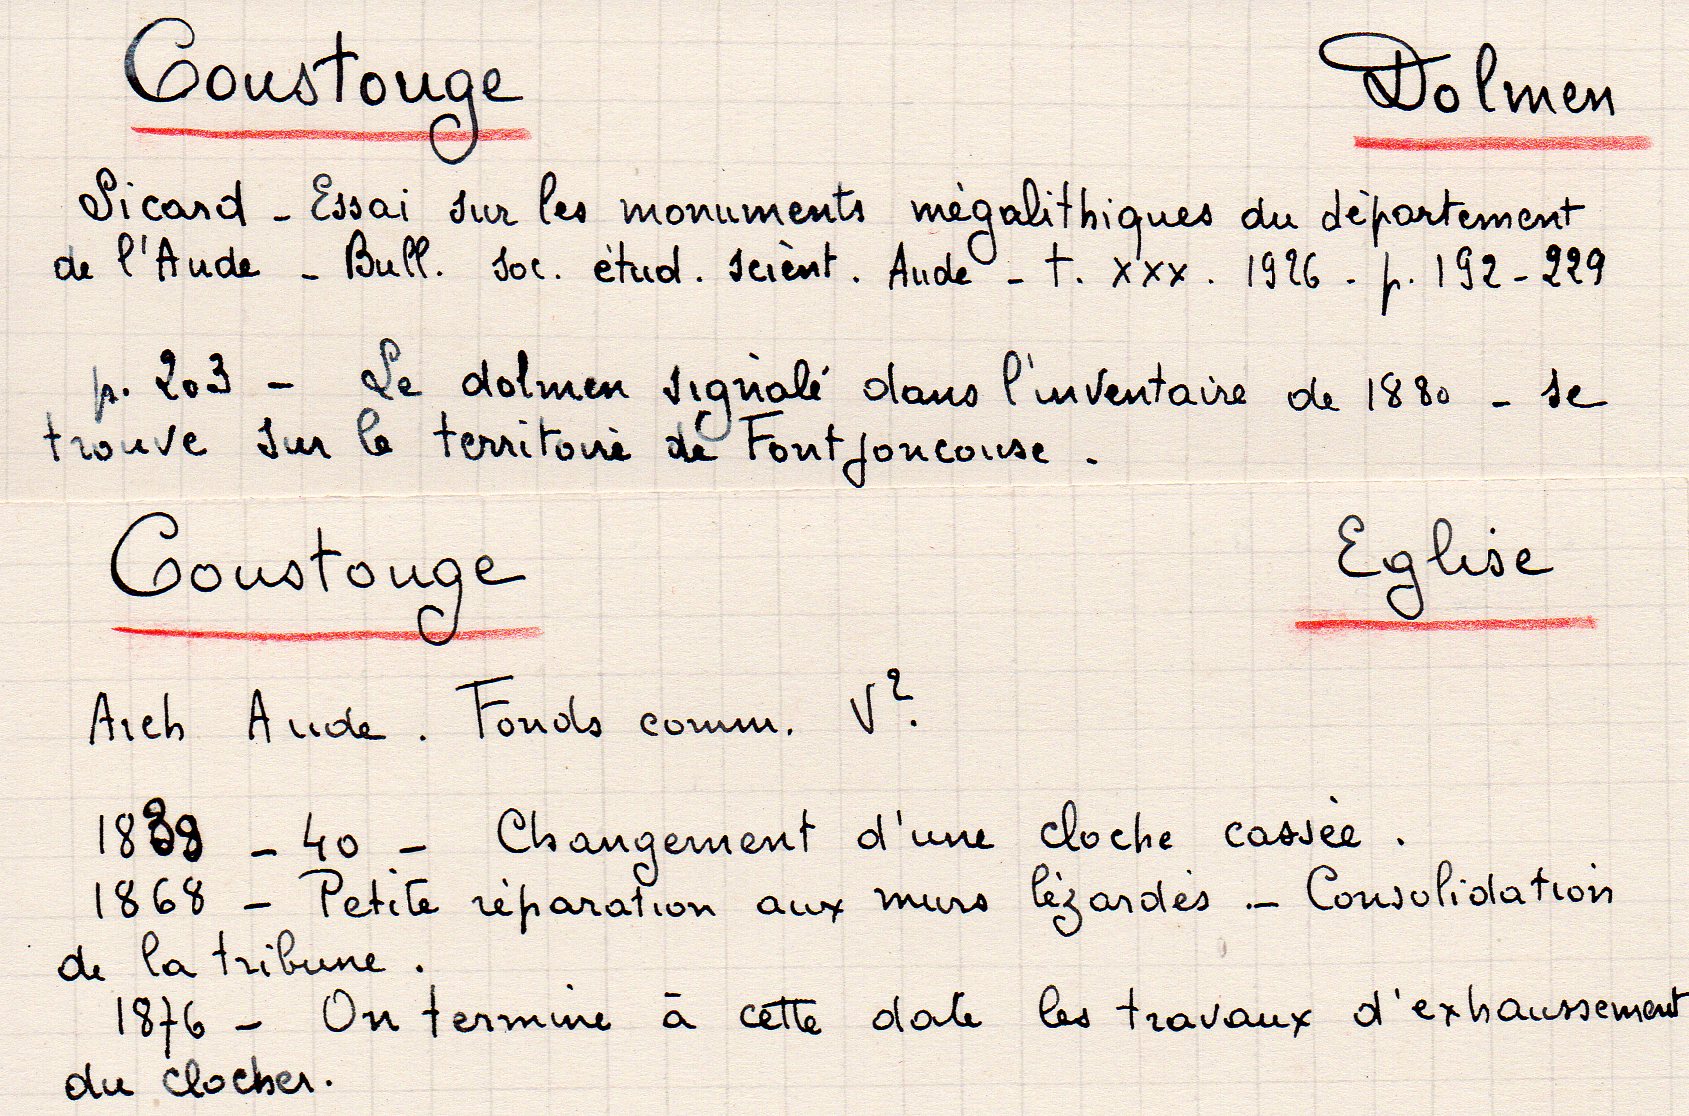 Coustouge Dolmen
Sicard - Essai sur les monuments mégalithiques du département
de l'Aude - Bull. soc. étud. scient. Aude - t. XXX. 1926 - p. 192-229
p. 203 - Le dolmen signalé dans l'inventaire de 1880 - se
trouve sur le territoire de Fontjoncouse.
Coustouge Eglise
Arch Aude. Fonds comm. V².
1839 - 40 - Changement d'une cloche cassée.
1868 - Petite réparation aux murs lézardés - Consolidation
de la tribune.
1876 - On termine à cette date les travaux d'exhaussement
du clocher.